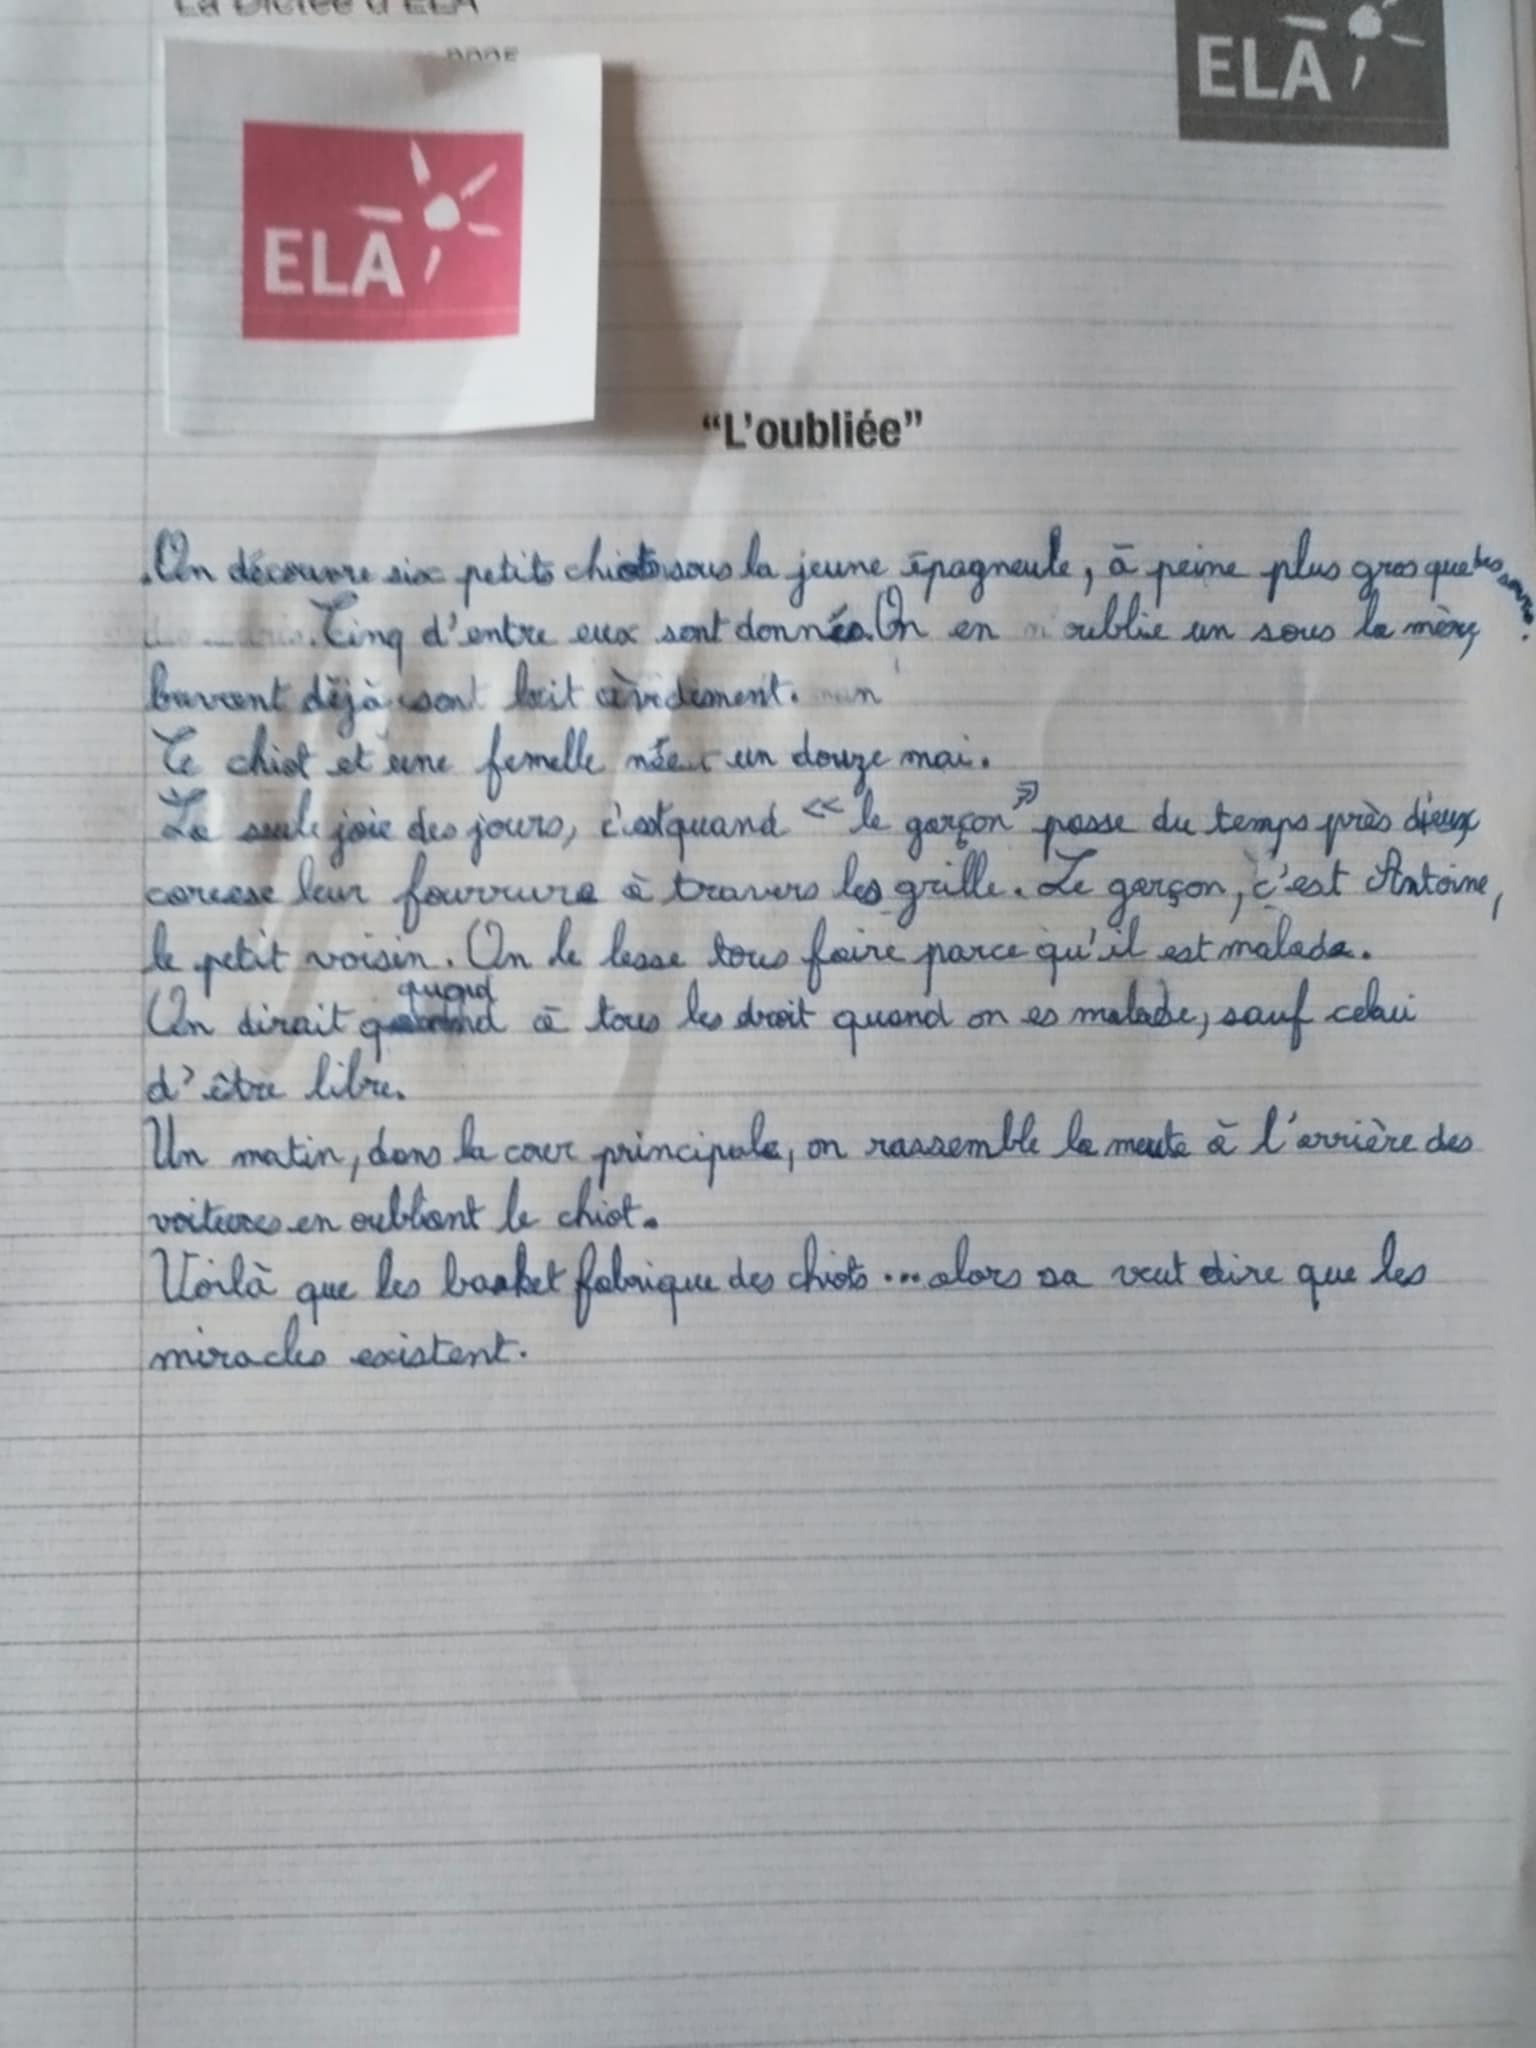 La Dictée d'ELA
ELA
ELA
“L'oubliée”
On découvre six petits chiots sous la jeune épagneule, à peine plus gros que
Cinq d'entre eux sont donnés. On en oublie un sous la mère,
buvant déjà sont lait èvidement.
Ce chiot et une femelle née un douze mai.
La seule joie des jours, c'est quand « le garçon » passe du temps près d'eux
carese leur fourrure à travers les grille. Le garçon, c'est Antoine,
le petit voisin. On le lesse tous faire parce qu'il est malade.
quand
On dirait à tous les droit quand on es malade, sauf celui
d'être libre.
Un matin, dans la cour principale, on rassemble la meute à l'arrière des
voitures en oubliant le chiot.
Voilà que les basket fabrique des chiots... alors sa veut dire que les
miracles existent.